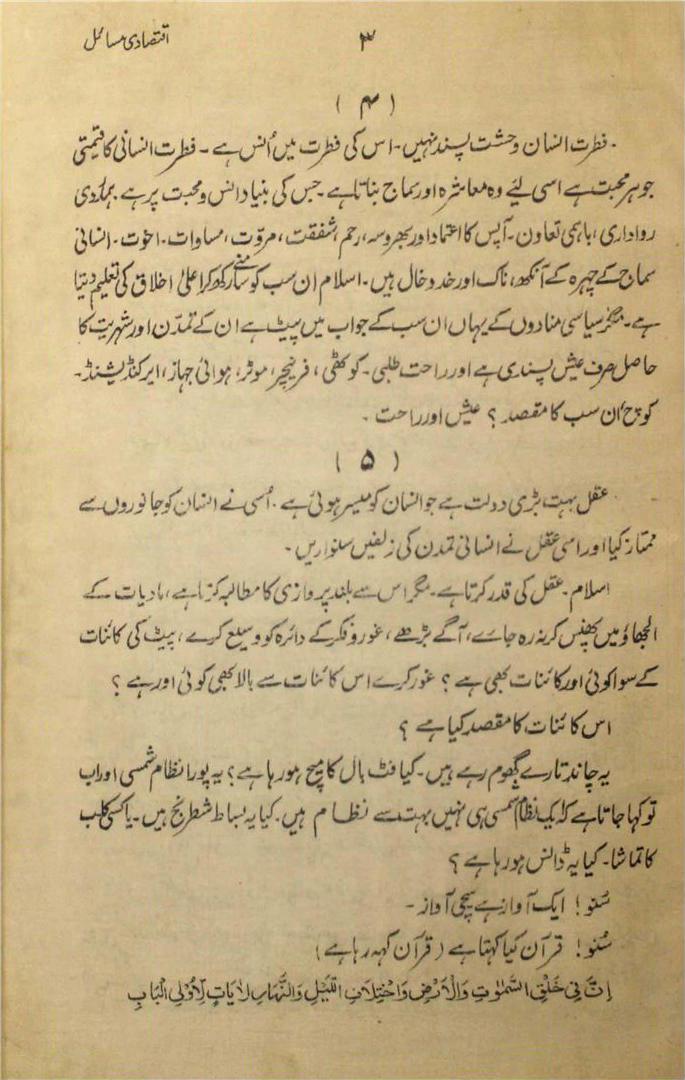 اقتصادی مسائل
۳
( ۴ )
فطرت انسان وحشت پسند نہیں۔ اس کی فطرت میں اُنس ہے ۔ فطرت انسانی کا قیمتی
جوہر محبت ہے اسی لیئے وہ معاشرہ اور سماج بناتا ہے ۔ جس کی بنیاد انس و محبت پر ہے ہمدردی
رواداری، باہمی تعاون۔ آپس کا اعتماد اور بھروسہ، رحم، شفقت، مروّت، مساوات۔ اخوّت۔ انسانی
سماج کے چہرہ کے آنکھ، ناک اور خدوخال ہیں۔ اسلام ان سب کو سامنے رکھ کر اعلیٰ اخلاق کی تعلیم دیتا
ہے۔ مگر سیاسی منادوں کے یہاں ان سب کے جواب میں پیٹ ہے ان کے تمدّن اور شہریت کا
حاصل صرف عیش پسندی ہے اور راحت طلبی۔ کوٹھی، فرنیچر، موٹر، ہوائی جہاز، ایرکنڈیشنڈ۔
کوچ، ان سب کا مقصد؟ عیش اور راحت ۔
( ۵ )
عقل بہت بڑی دولت ہے جو انسان کو میسر ہوئی ہے ۔ اُسی نے انسان کو جانوروں سے
ممتاز کیا اور اسی عقل نے انسانی تمدن کی زلفیں سنواریں ۔
اسلام ۔ عقل کی قدر کرتا ہے ۔ مگر اس سے بلند پروازی کا مطالبہ کرتا ہے، مادیات کے
الجھاؤ میں پھنس کر نہ رہ جائے، آگے بڑھے، غور و فکر کے دائرہ کو وسیع کرے، پیٹ کی کائنات
کے سوا کوئی اور کائنات بھی ہے؟ غور کرے اس کائنات سے بالا بھی کوئی اور ہے؟
اس کائنات کا مقصد کیا ہے ؟
یہ چاند تارے گھوم رہے ہیں۔ کیا فٹ بال کا میچ ہو رہا ہے؟ یہ پورا نظام شمسی اور اب
تو کہا جاتا ہے کہ ایک نظام شمسی ہی نہیں بہت سے نظام ہیں۔ کیا یہ بساط شطرنج ہیں۔ یا کسی کلب
کا تماشا۔ کیا یہ ڈانس ہو رہا ہے؟
سُنو! ایک آواز ہے سچی آواز ۔
سُنو! قرآن کیا کہتا ہے (قرآن کہہ رہا ہے)
اِنَّ فِیْ خَلْقِ السَّمٰوٰتِ وَالْاَرْضِ وَاخْتِلَافِ اللَّیْلِ وَالنَّهَارِ لَاٰیَاتٍ لِّاُولِی الْبَابِ